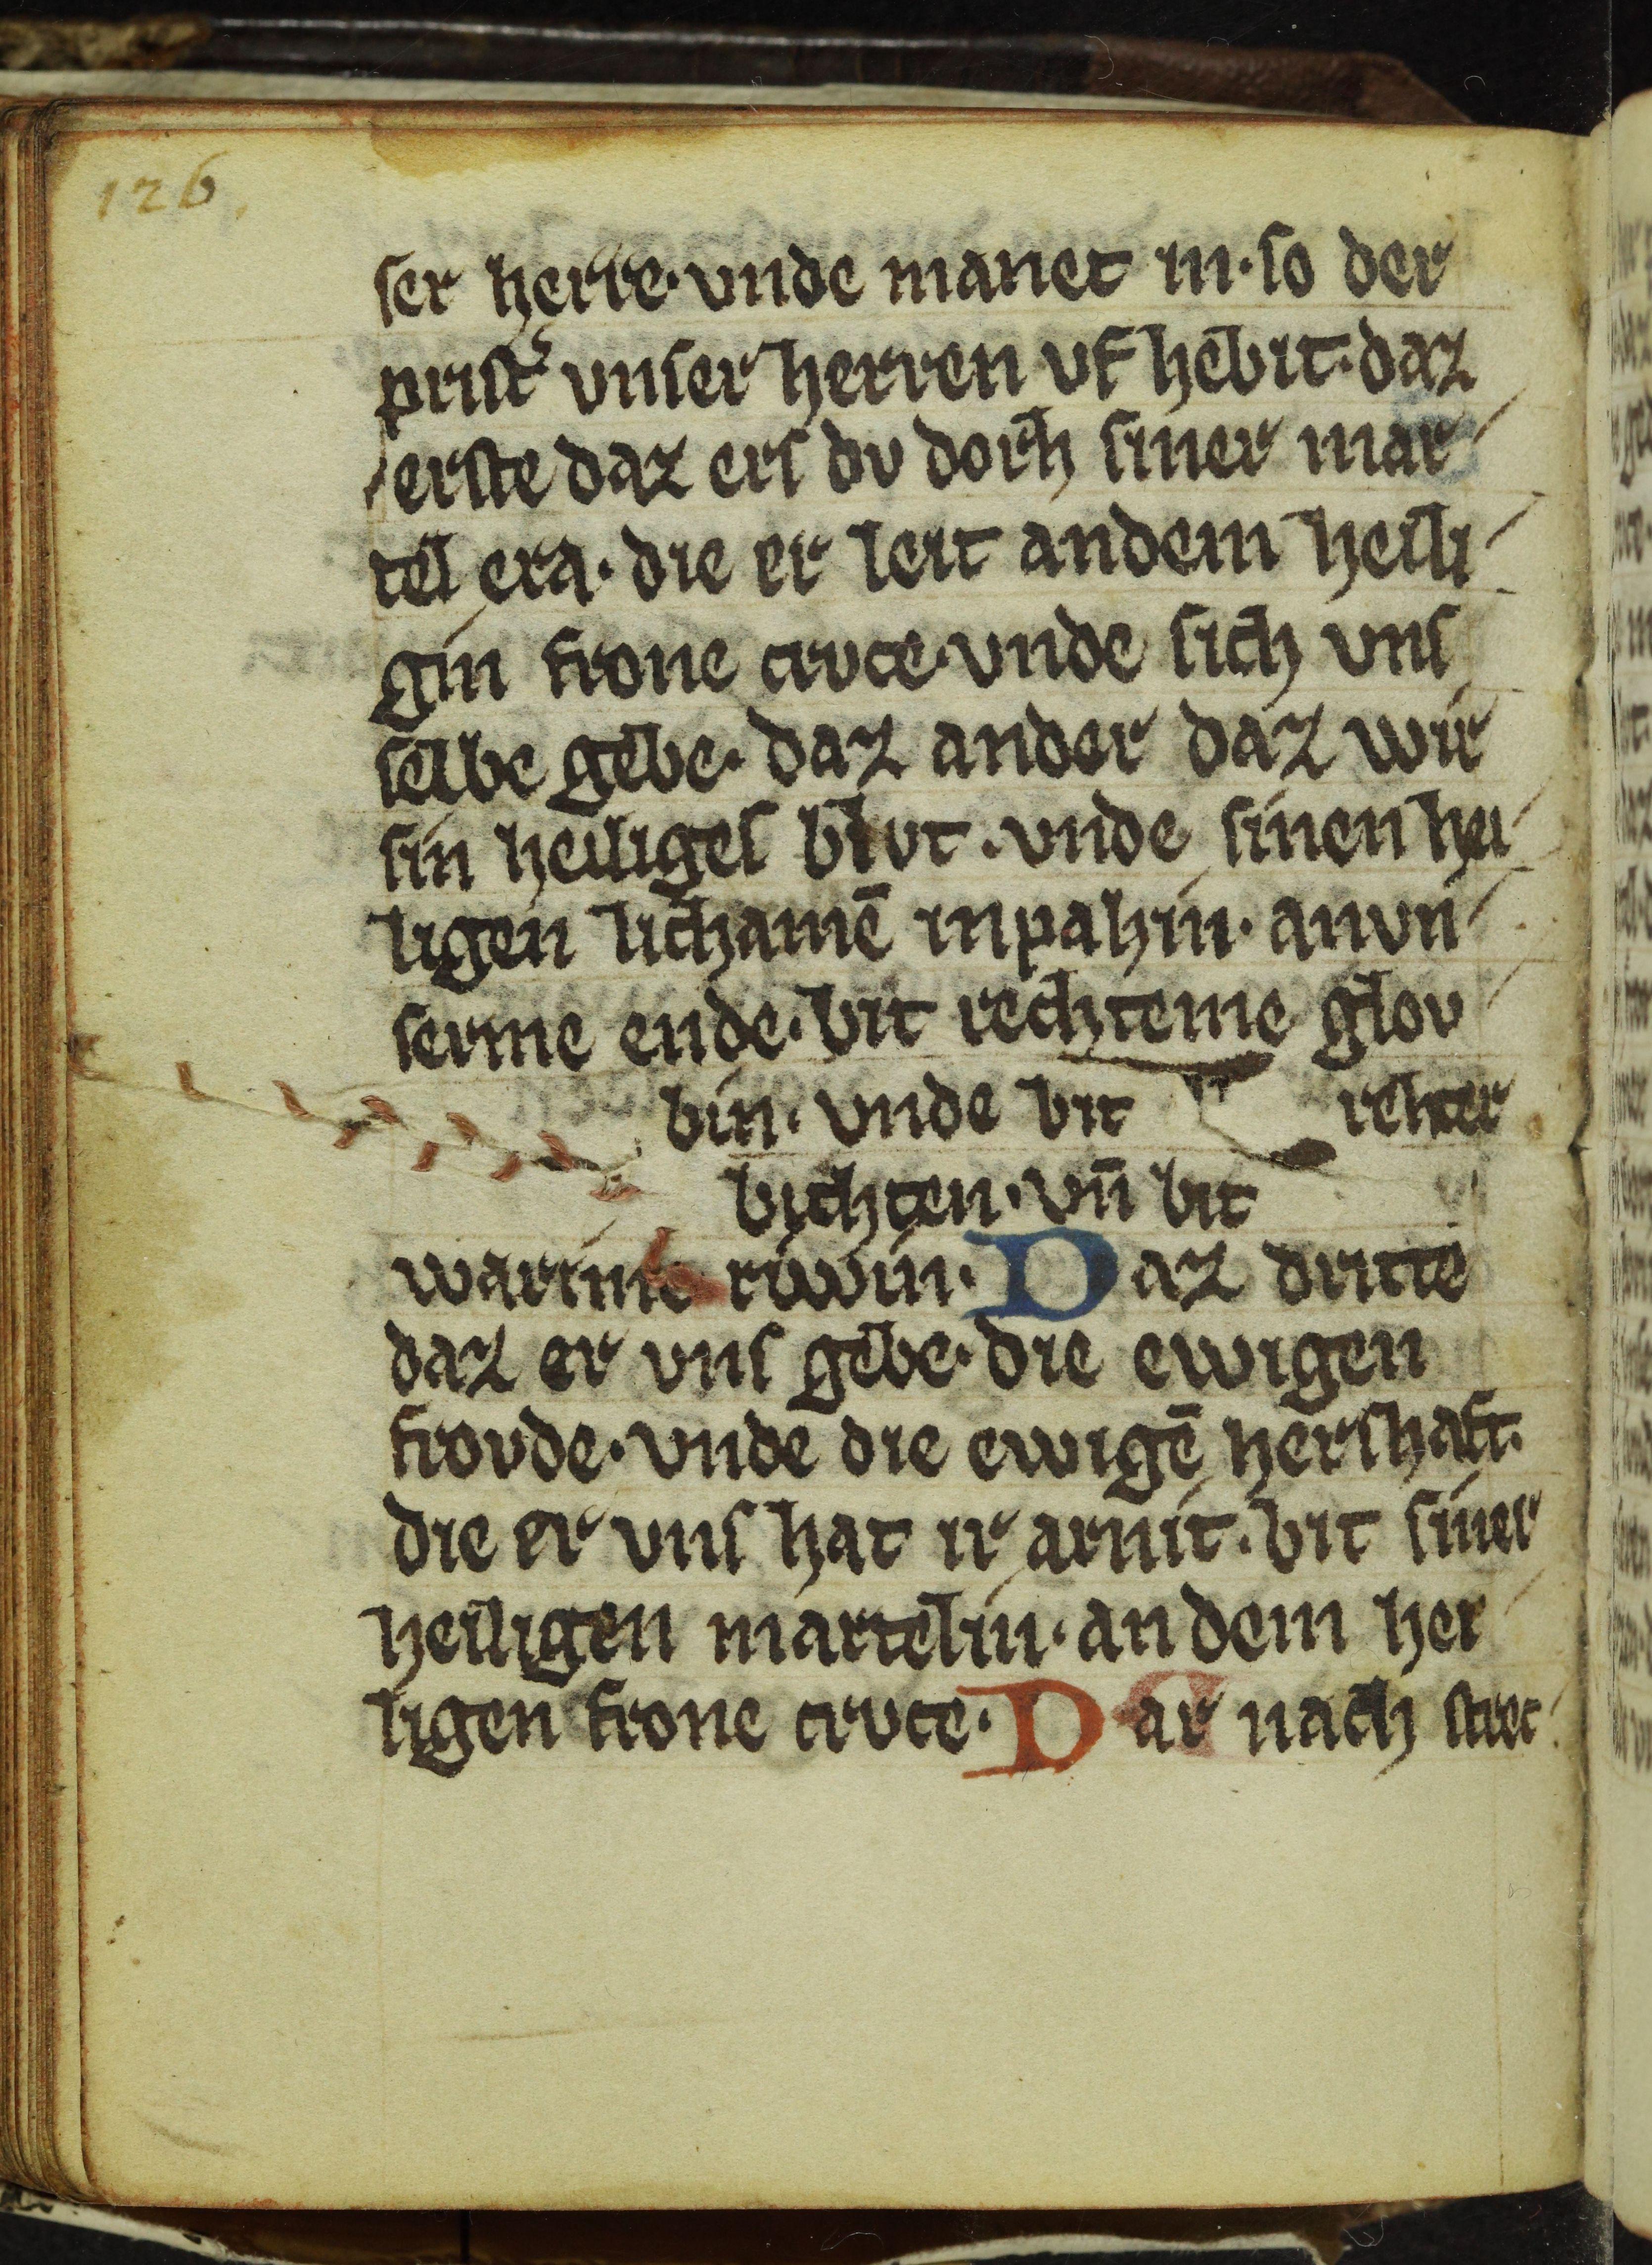 126.
ser herre·vnde manet in·so der
prist͛ vnser herren vf hebit·daz
erste daz ers dv dorh siner mar
tel era·die er leit andem heili
gin frone cruce·vnde sich vns
selbe gebe·daz ander daz wir
sin heiliges blvt·vnde sinen hei
ligen lichamē inpahin·anvn
serme ende·bit rechteme glov
bin·vnde bit rehter
bichten·vn̄ bit
warime riwin·Daz dritte
daz er vns gebe·die ewigen
frovde·vnde die ewigē hershaft·
die er vns hat ir arnit·bit siner
heiligen martelin·an dem hei
ligen frone cruce·Dar nach strec